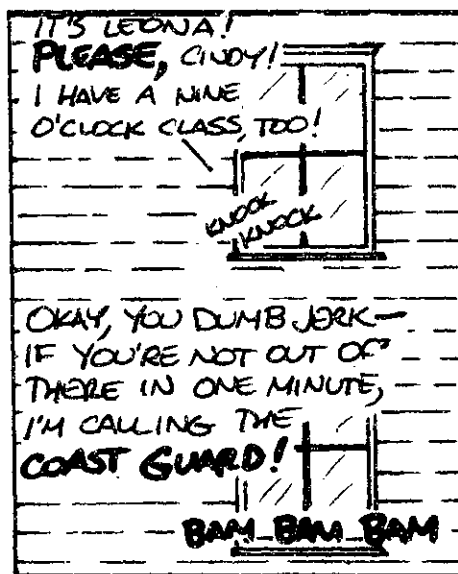 IT'S LEONA!
PLEASE, CINDY!
I HAVE A NINE
O'CLOCK CLASS, TOO!
KNOCK
KNOCK
OKAY, YOU DUMB JERK—
IF YOU'RE NOT OUT OF
THERE IN ONE MINUTE,
I'M CALLING THE
COAST GUARD!
BAM BAM BAM